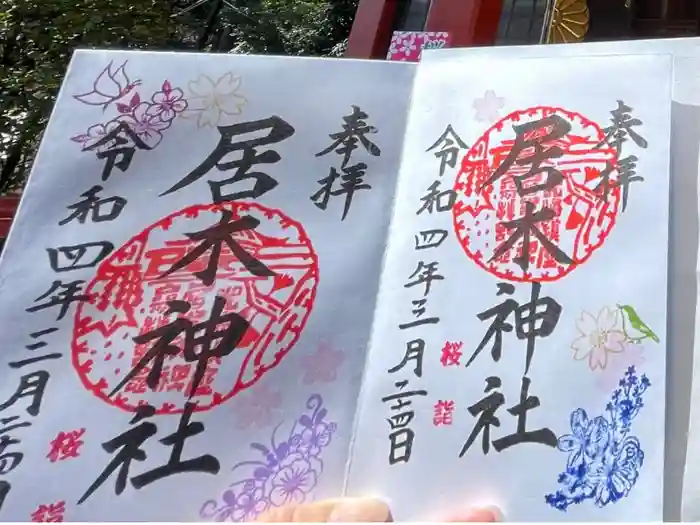 奉拝
居木神社
令和四年三月二十四日
桜詣
奉拝
居木神社
令和四年三月二十四
桜詣